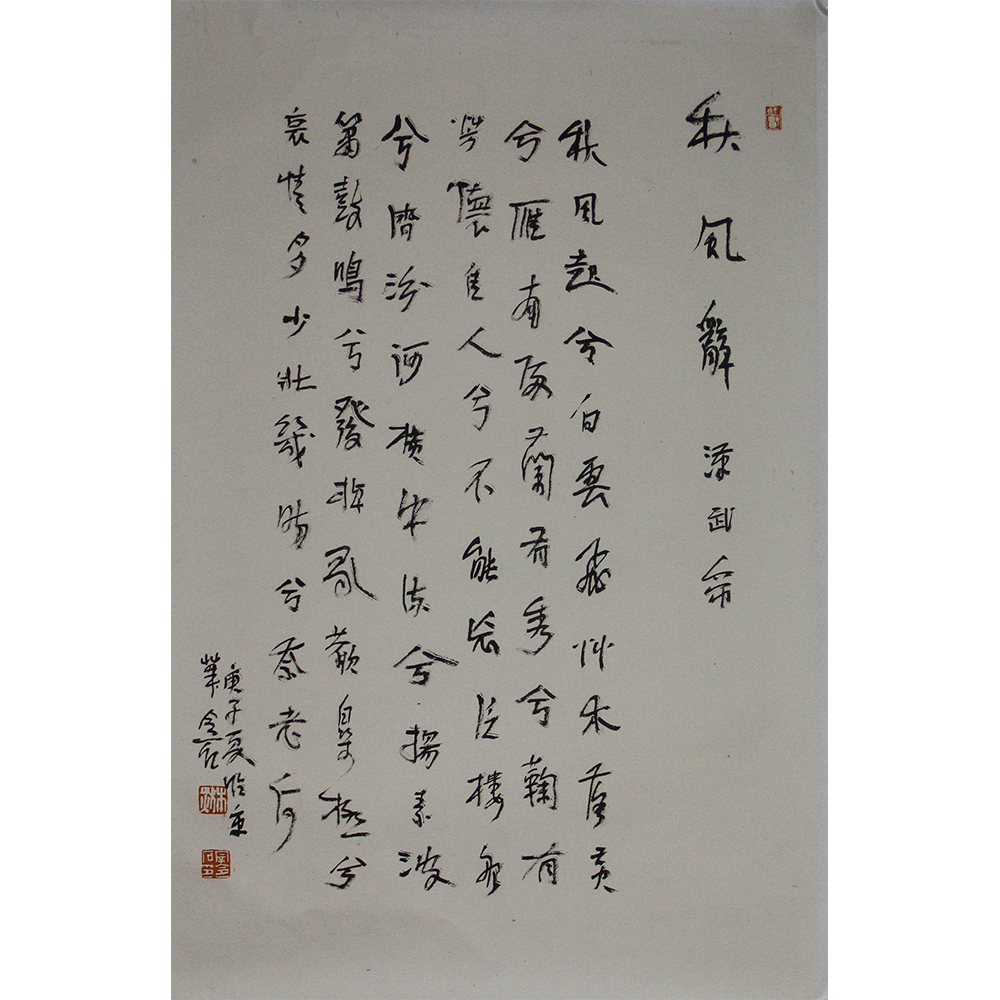 秋風辭 漢武帝
秋風起兮白雲飛艸木落黃
兮雁南歸蘭有秀兮鞠有
芳懷佳人兮不能忘泛樓船
兮濟汾河橫中流兮揚素波
簫鼓鳴兮發棹歌歡樂極兮
哀情多少壯幾時兮奈老何
庚子夏於京
華